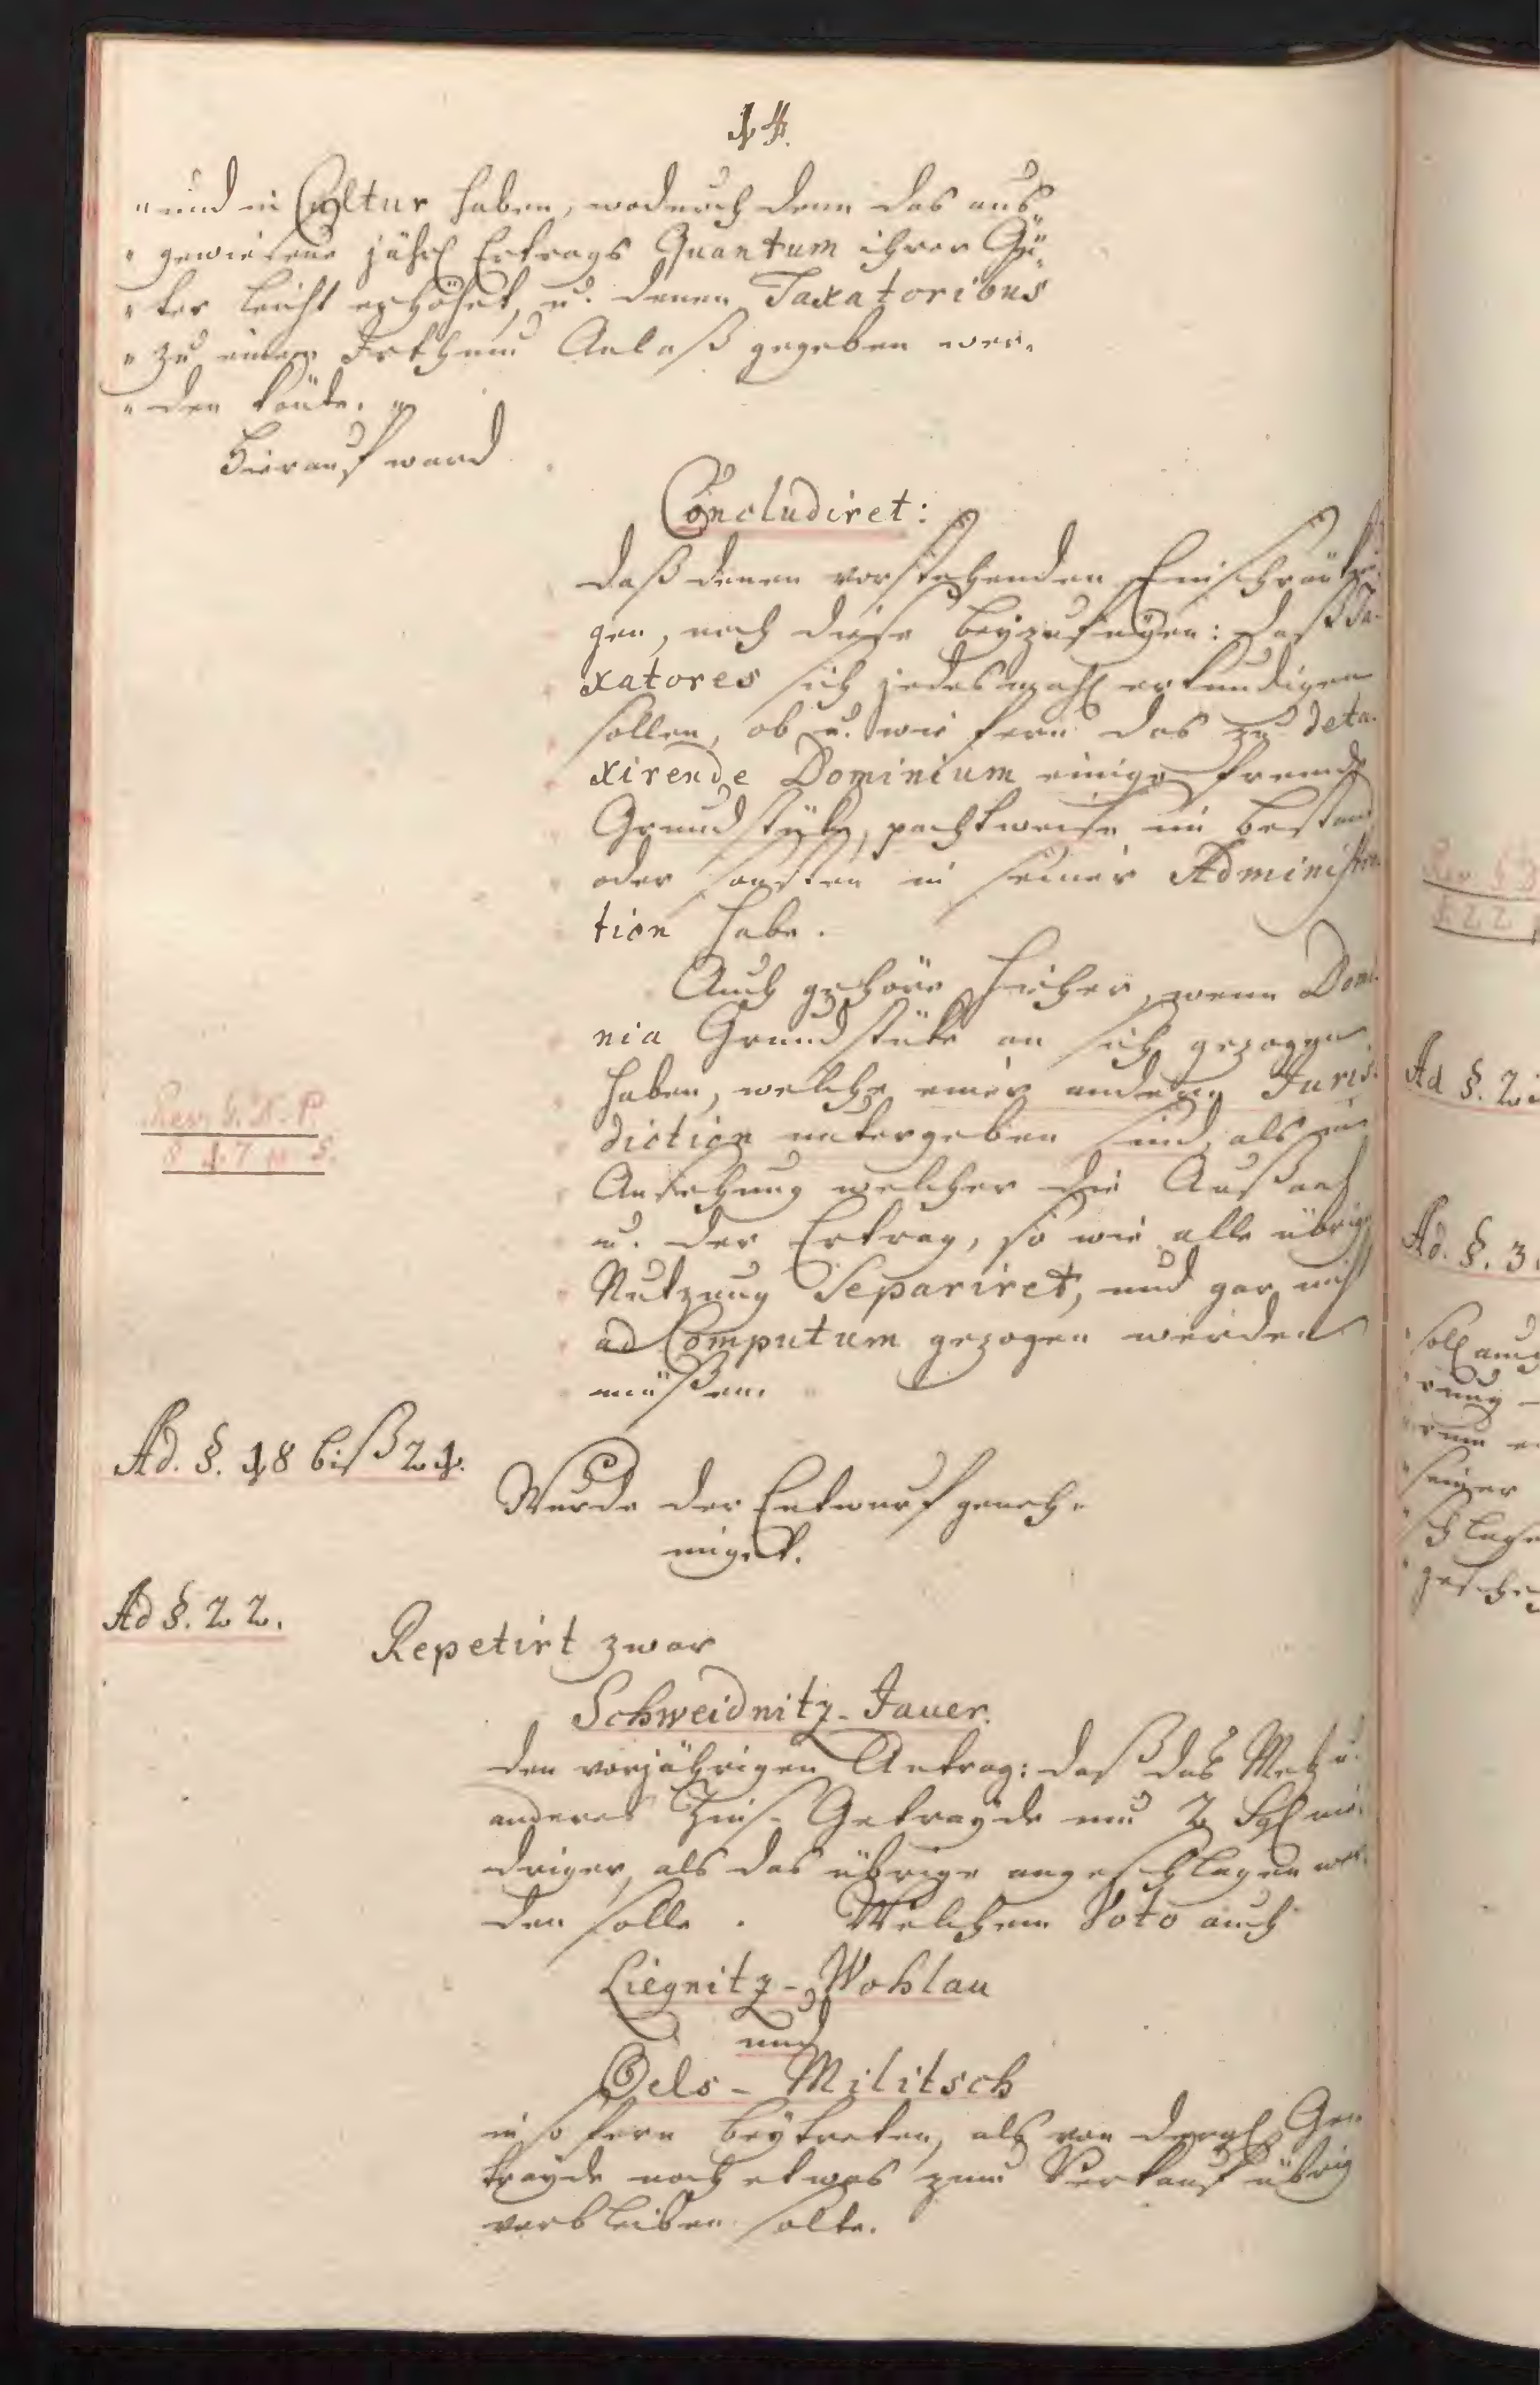 14.
" und in Cultur haben, wodurch denn das aus„
" gewiesene jährl Ertrags Quantum ihrer Gü„
" ter leicht erhöhet, u. denen Taxatoribus
" zu einem Irthum Anlaß gegeben wer„
" den könte. "
Hierauf ward
Concludiret:
daß denen vorstehenden Einschränkun
gen, noch diese beyzufügen: daß Ta-
xatores sich jedesmahl erkundigen
sollen, ob u. wie fern das zu deta-
xirende Dominium einige fremde
Grundstüke, pachtweise im Bestand
oder sonsten in seiner Administra
tion habe.
Auch gehöre hieher, wenn Domi-
nia Grundstüke an sich gezogen
haben, welche einer andern Juris-
diction untergeben sind, als in
Ansehung welcher die Aussaat
u. der Ertrag, so wie alle übrige
Nutzung Separiret, und gar nicht
ad Computum gezogen werden
müßen.
Rev. S. X. P.
§ 17
Ad. §. 18 biß 21.
Wurde der Entwurf geneh„
miget.
Ad §. 22.
Repetirt zwar
Schweidnitz-Jauer.
den vorjährigen Antrag: daß das Metz u.
anderes Zins-Getrayde um 2 Sgl nie-
driger, als das übrige angeschlagen wer-
den solle. Welchem Voto auch
Liegnitz-Wohlau
und
Oels-Militsch
in so fern beytreten, als von dergl Ge„
trayde noch etwas zum Verkauf übrig
verbleiben solte.
Ad §. 2
Ad. §. 3
soll auch
seiner